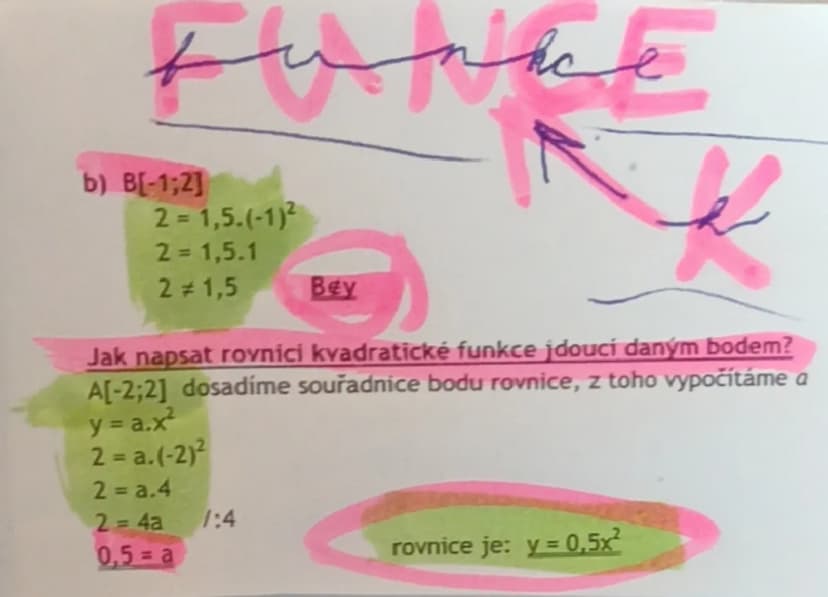 FUNCE
funkce
K
k
b) B[-1;2]
2 = 1,5.(-1)²
2 = 1,5.1
2 ≠ 1,5 B∉y
Jak napsat rovnici kvadratické funkce jdoucí daným bodem?
A[-2;2] dosadíme souřadnice bodu rovnice, z toho vypočítáme a
y = a.x²
2 = a.(-2)²
2 = a.4
2 = 4a /:4
0,5 = a
rovnice je: y = 0,5x²